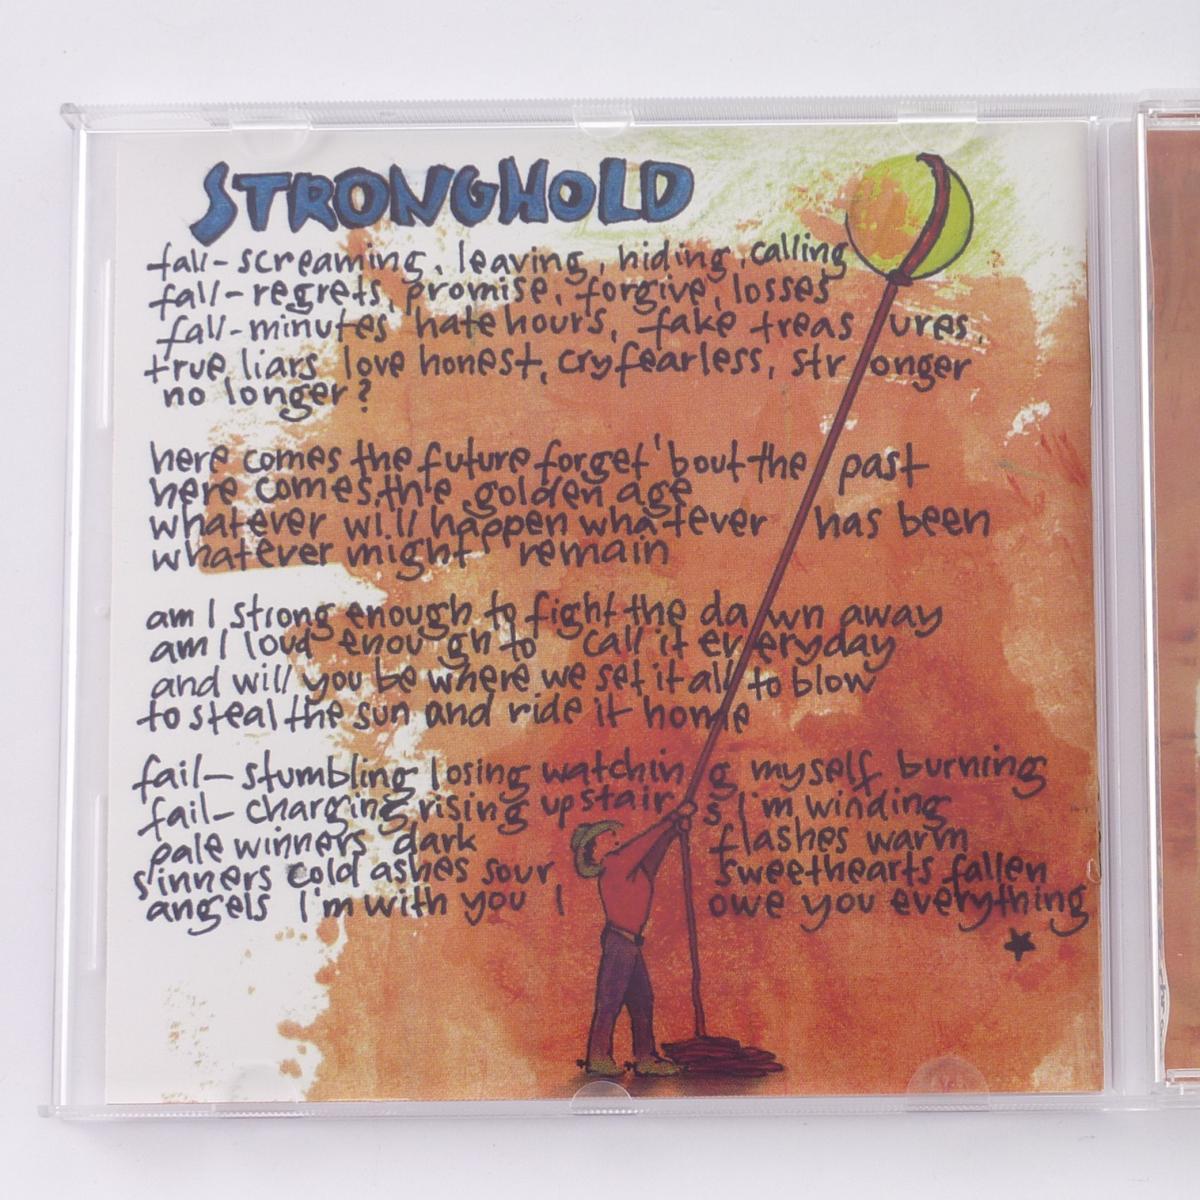 STRONGHOLD
fall-screaming, leaving, hiding, calling
fall-regrets, promise, forgive, losses
fall-minutes hate hours, fake treasures,
true liars love honest, cry fearless, stronger
no longer?
here comes the future forget 'bout the past
here comes the golden age
whatever will happen whatever has been
whatever might remain
am I strong enough to fight the dawn away
am I loud enough to call it everyday
and will you be where we set it all to blow
to steal the sun and ride it home
fail-stumbling losing watching myself burning
fail-charging rising upstairs I'm winding
pale winners dark flashes warm
sinners cold ashes sour sweethearts fallen
angels I'm with you I owe you everything